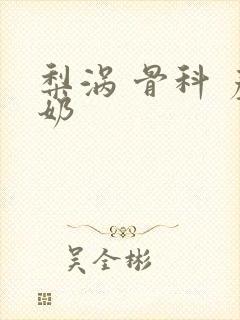 梨涡 骨科
奶
吴全彬